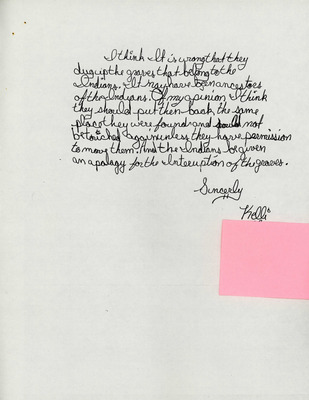 I think It is wrong that they
dug up the graves that belong to the
Indians. It may have been ancestoes
of the Indians. Of my opinion I think
they should put then back the same
place they were found and should not
be touched again unless they have permission
to move them. And the Indians be given
an apology for the Interuption of the graves.
Sincerly
Kelli